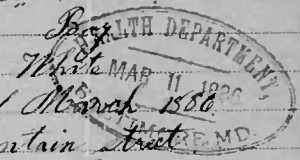 Boy
White
March 1886
ntain Street
HEALTH DEPARTMENT,
MAR 11 1886
MORE, MD.